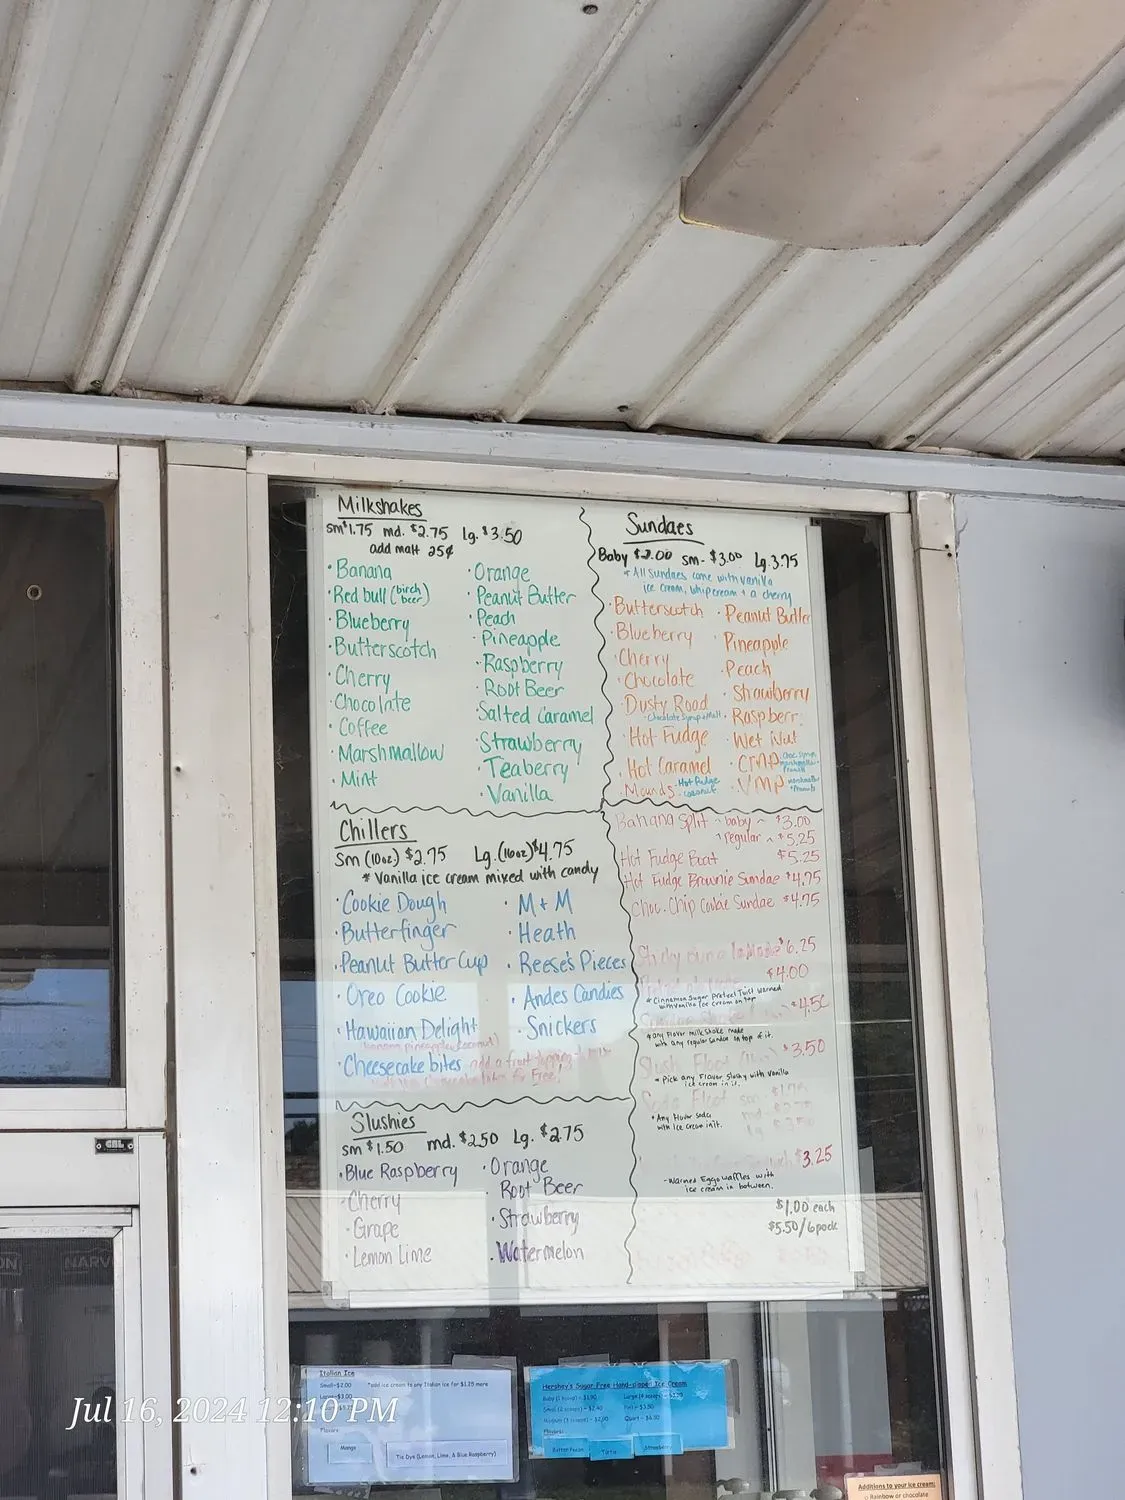 Milkshakes
sm $1.75 md. $2.75 Lg. $3.50
add malt 25¢
• Banana
• Red bull (birch beer)
• Blueberry
• Butterscotch
• Cherry
• Chocolate
• Coffee
• Marshmallow
• Mint
• Orange
• Peanut Butter
• Peach
• Pineapple
• Raspberry
• Root Beer
• Salted Caramel
• Strawberry
• Teaberry
• Vanilla
Sundaes
Baby $2.00 sm- $3.00 Lg. 3.75
* All Sundaes come with vanilla
ice cream, whipcream + a cherry
• Butterscotch
• Blueberry
• Cherry
• Chocolate
• Dusty Road
Chocolate Syrup + Malt
• Hot Fudge
• Hot Caramel
• Mounds - Hot Fudge
coconut
• Peanut Butter
• Pineapple
• Peach
• Strawberry
• Raspberr
• Wet Nut
• CMP
• VMP
Chillers
Sm (10oz.) $2.75 Lg. (16oz) $4.75
* Vanilla ice cream mixed with candy
• Cookie Dough
• Butterfinger
• Peanut Butter Cup
• Oreo Cookie
• Hawaiian Delight
(banana, pineapple, coconut)
• Cheesecake bites add a fruit topping
for Free!
• M + M
• Heath
• Reese's Pieces
• Andes Candies
• Snickers
Banana Split ~ baby ~ $3.00
regular ~ $5.25
Hot Fudge Boat $5.25
Hot Fudge Brownie Sundae $4.75
Choc. Chip Cookie Sundae $4.75
$6.25
$4.00
* Cinnamon Sugar Pretzel Twist warmed
with vanilla ice cream on top
$4.50
* any Flavor milkshake made
with any regular Sundae on top of it.
Slush Float $3.50
* Pick any Flavor Slushy with vanilla
ice cream in it.
Soda Float
* Any Flavor soda
with Ice cream in it.
$3.25
- Warmed Eggo waffles with
ice cream in between.
$1.00 each
$5.50/6pack
Slushies
sm $1.50 md. $2.50 Lg. $2.75
• Blue Raspberry
• Cherry
• Grape
• Lemon Lime
• Orange
• Root Beer
• Strawberry
• Watermelon
CBL
NARV
Italian Ice
Small-$2.00 *add ice cream to any Italian ice for $1.25 more
Large-$3.00
Flavors
Mango
Tie Dye (Lemon, Lime, & Blue Raspberry)
Hershey's Sugar Free Hand-dipped Ice Cream
Flavors:
Butter Pecan
Strawberry
Additions to your ice cream:
Rainbow or chocolate
Jul 16, 2024 12:10 PM